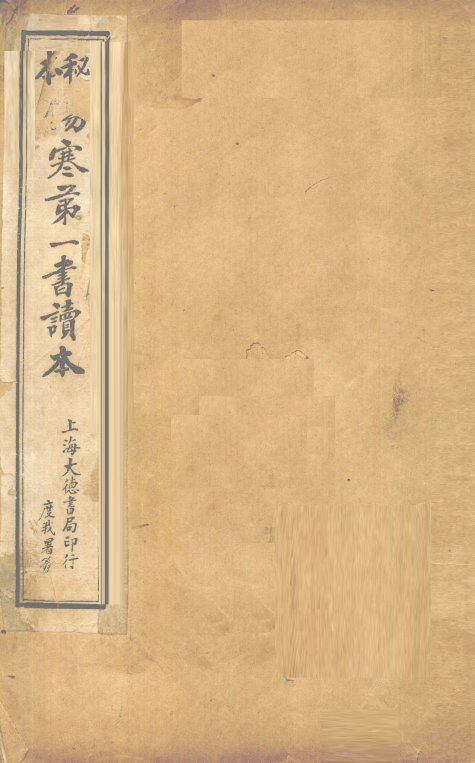 秘本
寒苐一書讀本
上海大德書局印行
度我署